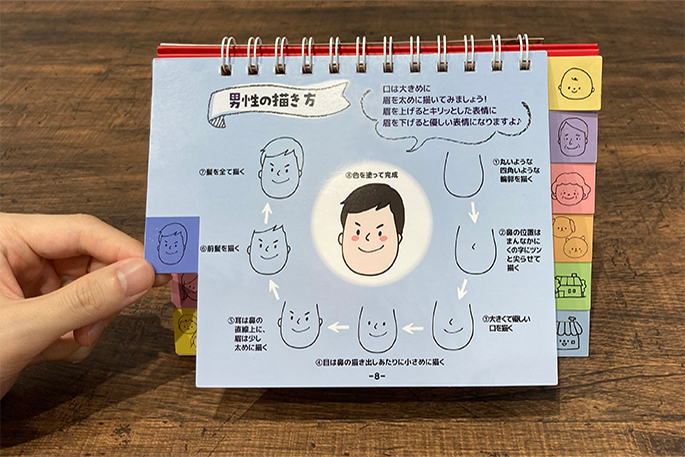 男性の描き方
口は大きめに
眉を太めに描いてみましょう!
眉を上げるとキリッとした表情に
眉を下げると優しい表情になりますよ♪
①丸いような
四角いような
輪郭を描く
②鼻の位置は
まんなかに
くの字にツン
と尖らせて
描く
①大きくて優しい
口を描く
④目は鼻の描き出しあたりに小さめに描く
⑤耳は鼻の
直線上に、
眉は少し
太めに描く
⑥前髪を描く
⑦髪を全て描く
⑧色を塗って完成
-8-